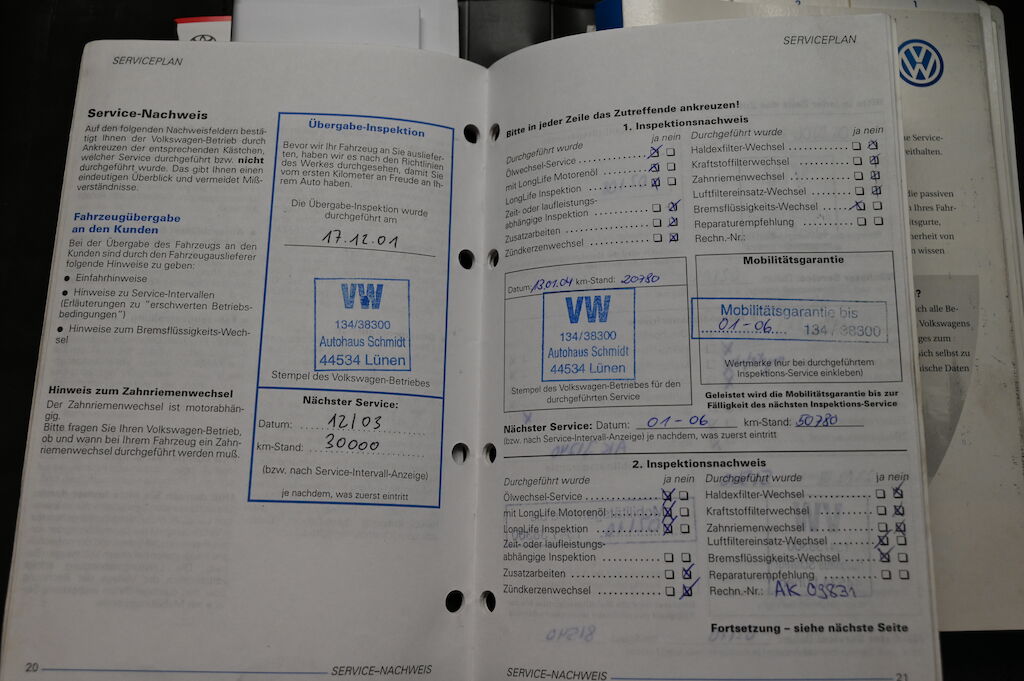 SERVICEPLAN
Service-Nachweis
Auf den folgenden Nachweisfeldern bestä-
tigt Ihnen der Volkswagen-Betrieb durch
Ankreuzen der entsprechenden Kästchen,
welcher Service durchgeführt bzw. nicht
durchgeführt wurde. Das gibt Ihnen einen
eindeutigen Überblick und vermeidet Miß-
verständnisse.
Fahrzeugübergabe
an den Kunden
Bei der Übergabe des Fahrzeugs an den
Kunden sind durch den Fahrzeugauslieferer
folgende Hinweise zu geben:
● Einfahrhinweise
● Hinweise zu Service-Intervallen
(Erläuterungen zu "erschwerten Betriebs-
bedingungen")
● Hinweise zum Bremsflüssigkeits-Wech-
sel
Hinweis zum Zahnriemenwechsel
Der Zahnriemenwechsel ist motorabhän-
gig.
Bitte fragen Sie Ihren Volkswagen-Betrieb,
ob und wann bei Ihrem Fahrzeug ein Zahn-
riemenwechsel durchgeführt werden muß.
Übergabe-Inspektion
Bevor wir Ihr Fahrzeug an Sie ausliefer-
ten, haben wir es nach den Richtlinien
des Werkes durchgesehen, damit Sie
vom ersten Kilometer an Freude an Ih-
rem Auto haben.
Die Übergabe-Inspektion wurde
durchgeführt am
17.12.01
VW
134/38300
Autohaus Schmidt
44534 Lünen
Stempel des Volkswagen-Betriebes
Nächster Service:
Datum: 12/03
km-Stand: 30000
(bzw. nach Service-Intervall-Anzeige)
je nachdem, was zuerst eintritt
20
SERVICE–NACHWEIS
SERVICEPLAN
Bitte in jeder Zeile das Zutreffende ankreuzen!
1. Inspektionsnachweis
Durchgeführt wurde ja nein
Ölwechsel-Service
mit LongLife Motorenöl
LongLife Inspektion
Zeit- oder laufleistungs-
abhängige Inspektion
Zusatzarbeiten
Zündkerzenwechsel
Durchgeführt wurde ja nein
Haldexfilter-Wechsel
Kraftstoffilterwechsel
Zahnriemenwechsel
Luftfiltereinsatz-Wechsel
Bremsflüssigkeits-Wechsel
Reparaturempfehlung
Rechn.-Nr.:
Datum: 13.01.04 km-Stand: 20780
VW
134/38300
Autohaus Schmidt
44534 Lünen
Stempel des Volkswagen-Betriebes für den
durchgeführten Service
Mobilitätsgarantie
Mobilitätsgarantie bis
01-06 134/38300
Wertmarke (nur bei durchgeführtem
Inspektions-Service einkleben)
Geleistet wird die Mobilitätsgarantie bis zur
Fälligkeit des nächsten Inspektions-Service
Nächster Service: Datum: 01-06 km-Stand: 50780
(bzw. nach Service-Intervall-Anzeige) je nachdem, was zuerst eintritt
2. Inspektionsnachweis
Durchgeführt wurde ja nein
Ölwechsel-Service
mit LongLife Motorenöl
LongLife Inspektion
Zeit- oder laufleistungs-
abhängige Inspektion
Zusatzarbeiten
Zündkerzenwechsel
Durchgeführt wurde ja nein
Haldexfilter-Wechsel
Kraftstoffilterwechsel
Zahnriemenwechsel
Luftfiltereinsatz-Wechsel
Bremsflüssigkeits-Wechsel
Reparaturempfehlung
Rechn.-Nr.: AK 09831
Fortsetzung – siehe nächste Seite
SERVICE–NACHWEIS
21
2
1
VW
Service-
die passiven
Ihres Fahr-
wissen
ich alle Be-
Volkswagens
sich selbst zu